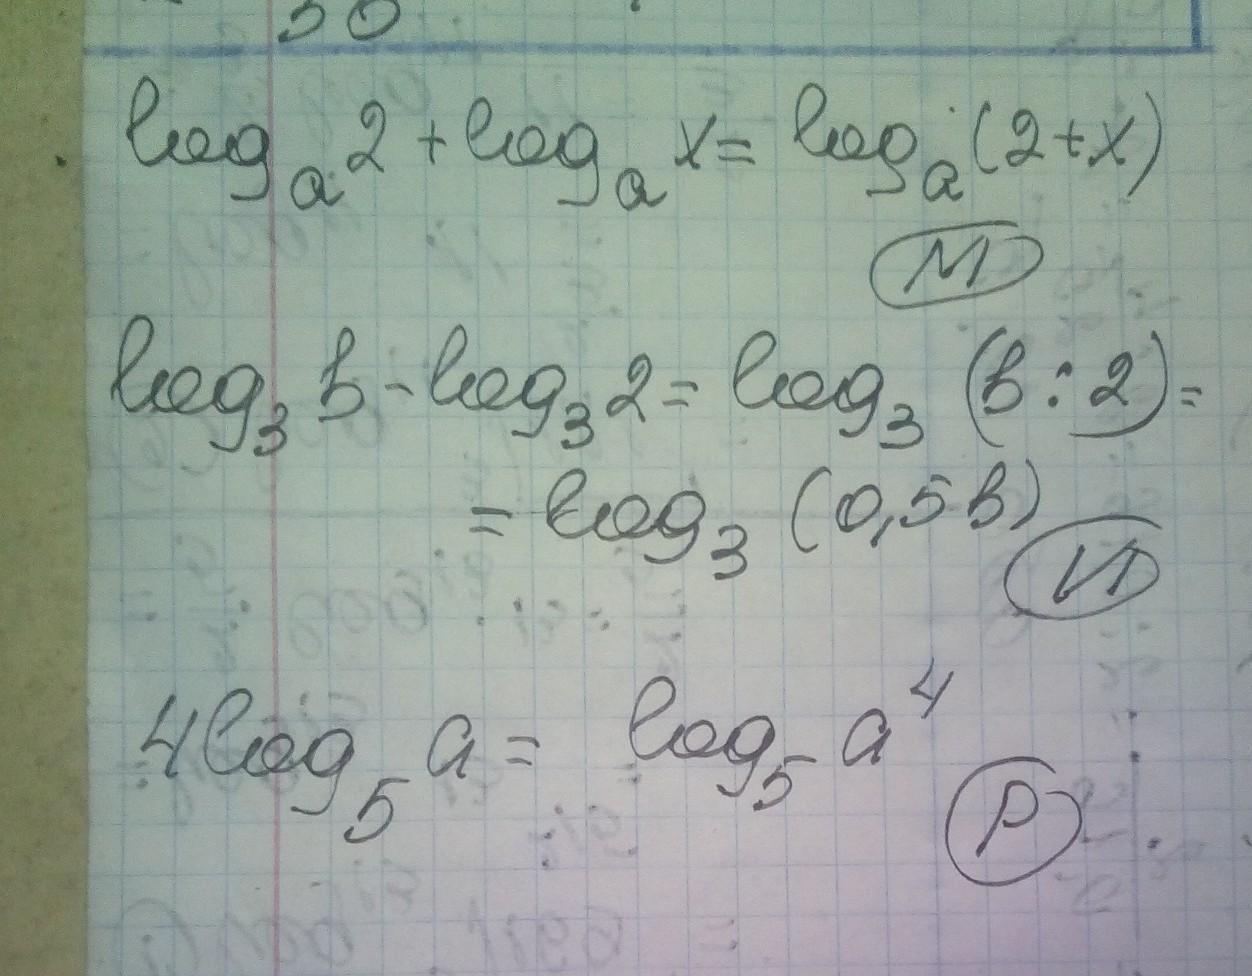 30
logₐ2 + logₐx = logₐ(2+x)
М
log₃b - log₃2 = log₃(b:2) =
= log₃(0,5b)
И
4log₅a = log₅a⁴
Р